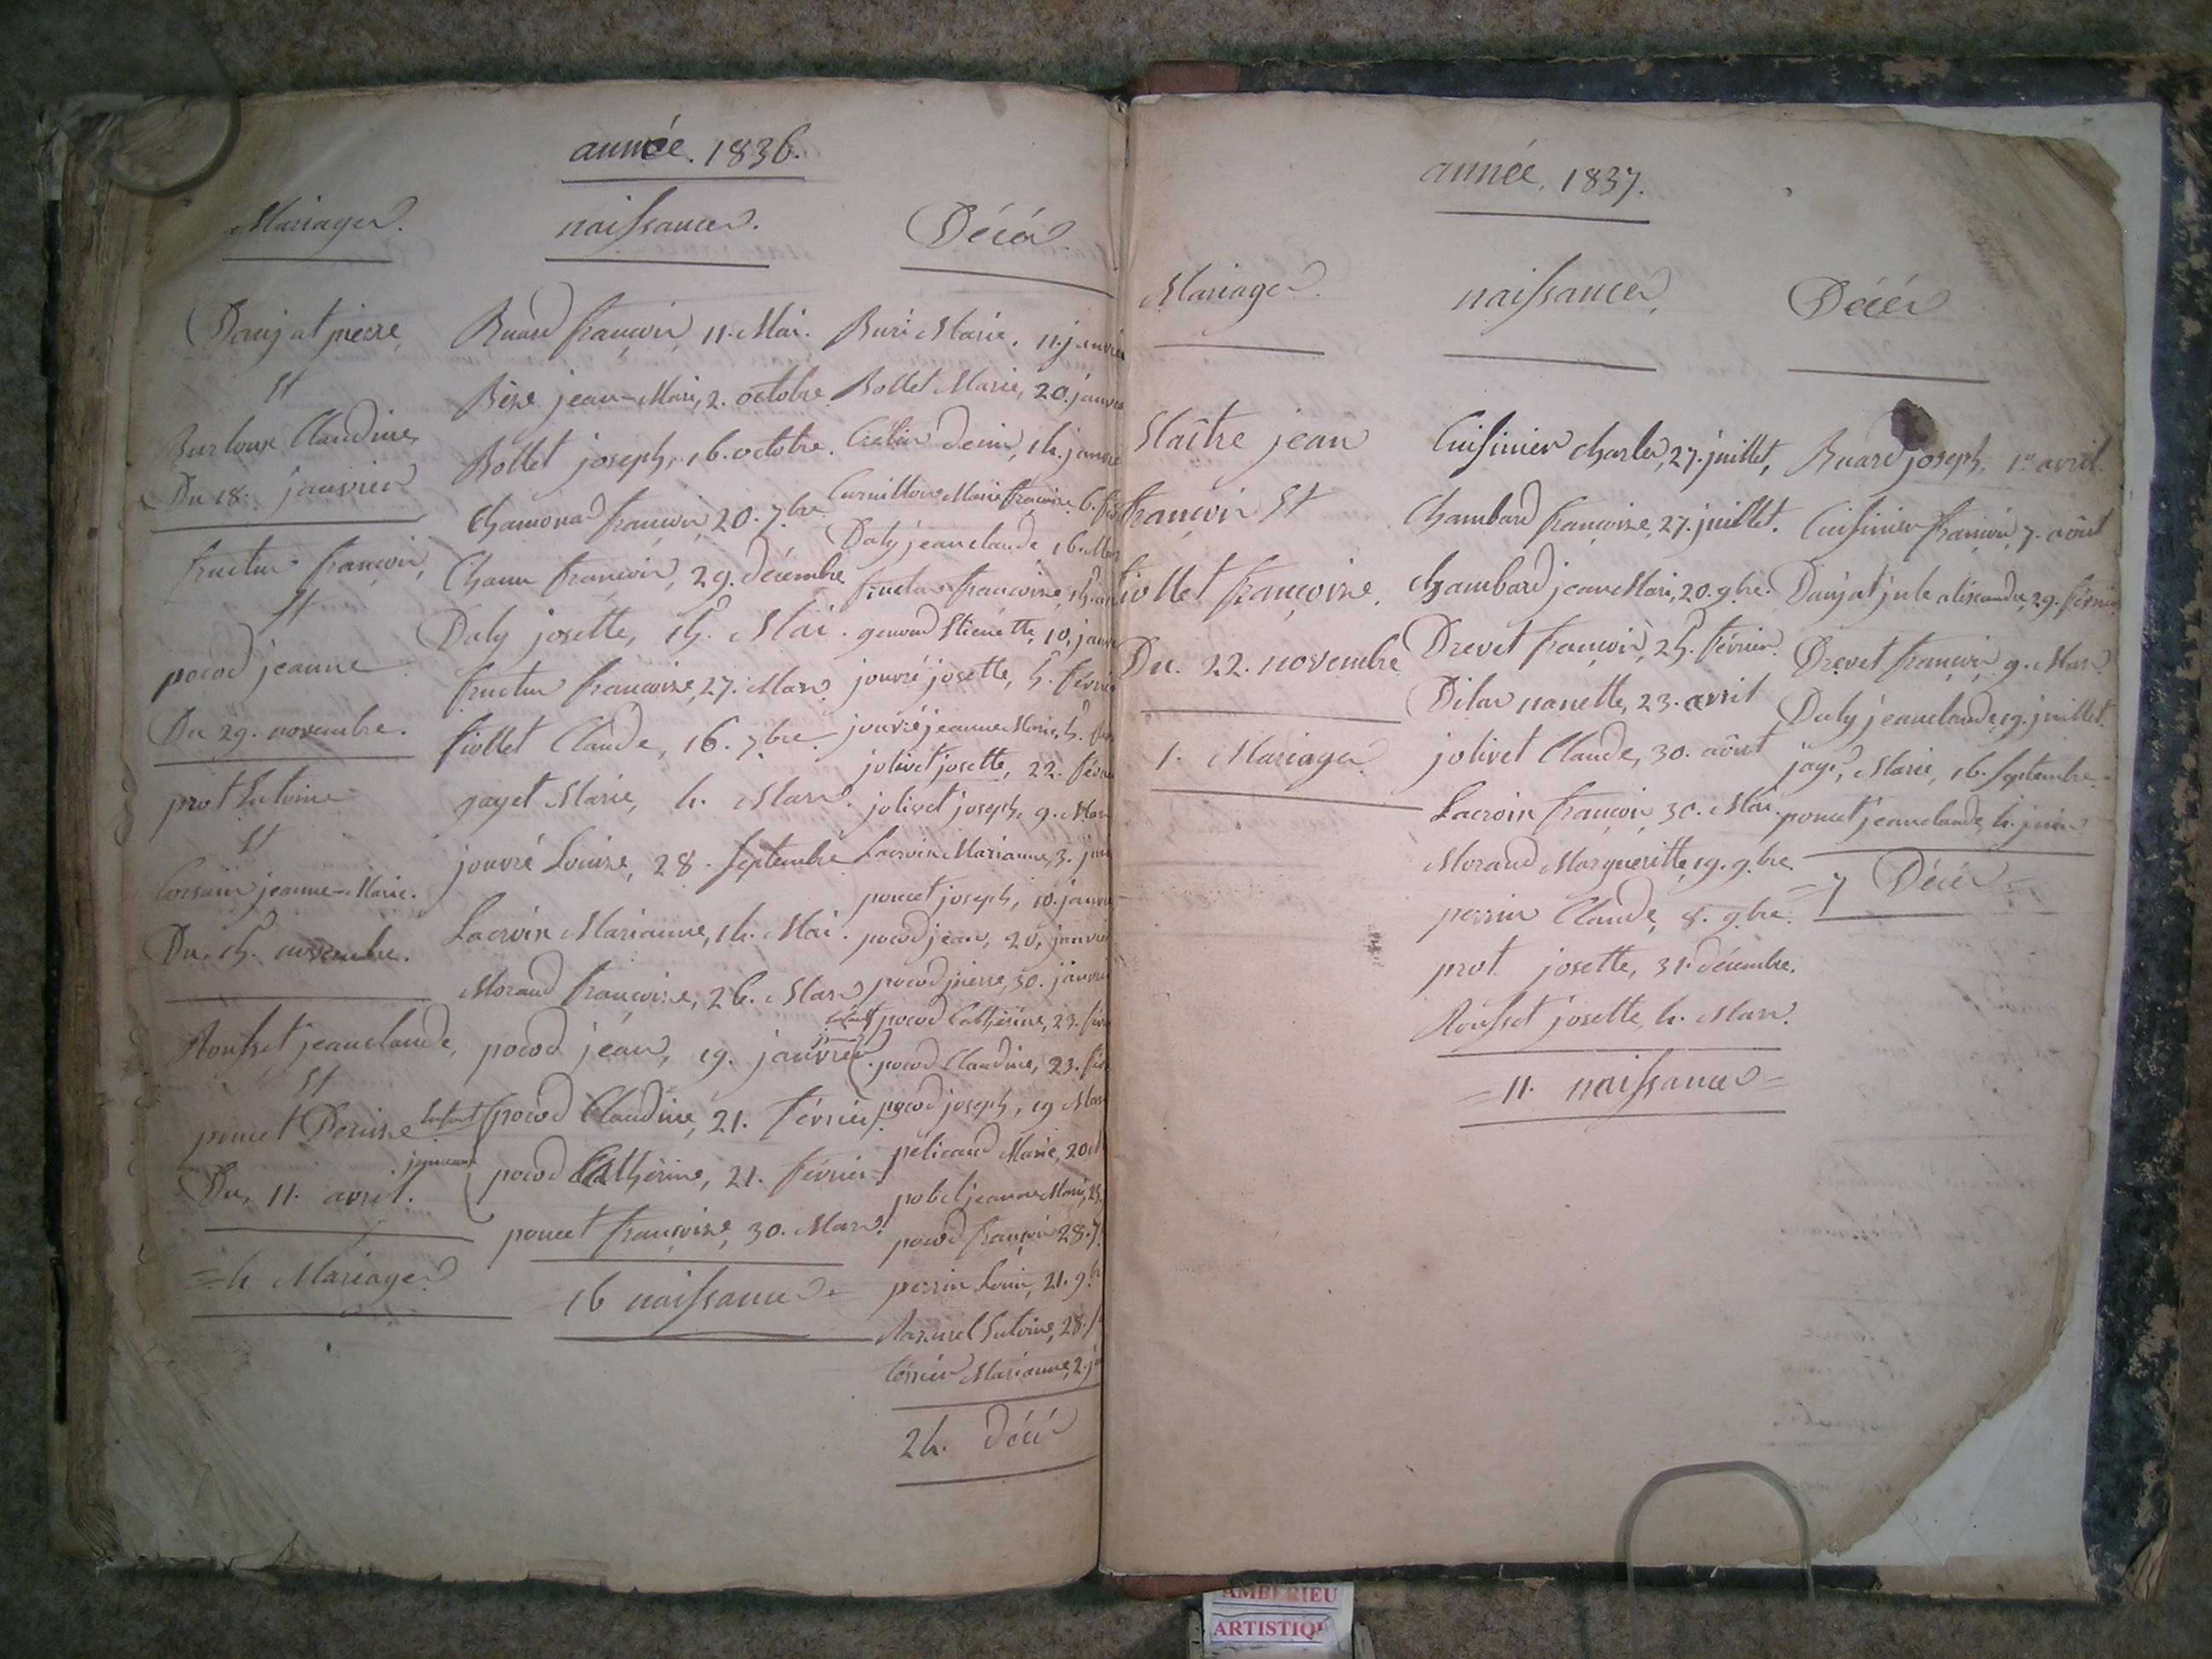 année. 1836.
Mariages.
Danjat pierre,
Et
Burloux Claudine,
Du 18. janvier
fructus françois,
Et
pocod jeanne
Du 29. novembre.
prot Antoine
Et
Corsain jeanne-Marie.
Du 15. novembre.
Rousset jeanclaude,
Et
poncet Denise
Du, 11. avril.
=4 Mariages
naissances.
Ruard françois, 11. Mai.
Bère jean-Marie, 2. octobre
Bollet joseph, 16. octobre.
Chamonad françois, 20. 7bre
Chanu françois, 29. décembre
Daly josette, 15. Mai.
fructus françoise, 27. Mars
fiollet Claude, 16. 7bre.
gayet Marie, 4. Mars.
jouvré Louise, 28. Septembre
Lacroix Marianne, 14. Mai.
Morand françoise, 26. Mars
pocod jean, 19. janvier
Enfants jumeaux
pocod Claudine, 21. février
pocod Catherine, 21. février
poncet françoise, 30. Mars.
16 naissances=
Décès.
Buri Marie, 11. janvier
Bollet Marie, 20. janvie
denis, 14. janvie
Curnillon Marie françoise, 6.
Daly jeanclaude 16. Mars
fructus françoise, 15.
genoud Etienette, 10, janvie
jouvré josette, 5. février
jouvré jeanne Marie, 5.
jolivet josette, 22. février
jolivet joseph, 9. Mars
Lacroix Marianne, 3.
poncet joseph, 10. janvie
pocod jean, 20, janvier
pocod pierre, 30. janvier
Enfants
pocod Catherine, 23. fév
pocod Claudine, 23. fév
pocod joseph, 19 Mars
pelicand Marie, 20
pobel jeanne Marie, 25.
pocod françois 28. 7
perrin Louis, 21. 9b
Razurel Antoine, 28.
Marianne, 2. j
24. décès
année. 1837.
Mariages.
Maître jean
françois Et
fiollet françoise.
Du. 22. novembre
1. Mariages
naissances,
Cuisinier charles, 27. juillet,
Chambard françoise, 27. juillet.
Chambard jean Marie, 20. 9bre.
Drevet françois, 25. février.
Dilas nanette, 23. avril
jolivet Claude, 30. août
Lacroix françois, 30. Mai.
Morand Marguerite, 19. 9bre.
perrin Claude, 8. 9bre.
prot josette, 31. décembre.
Rousset josette, 4. Mars.
=11. naissances=
Décès
Ruard joseph, 1er avril.
Cuisinier françois, 7. août
Danjat jule alixandre, 29. février
Drevet françois, 9. Mars
Daly jeanclaude, 19. juillet.
Marie, 16. Septembre.
poncet jeanclaude, 4. juin
=7 Décès=
AMBERIEU
ARTISTIQU